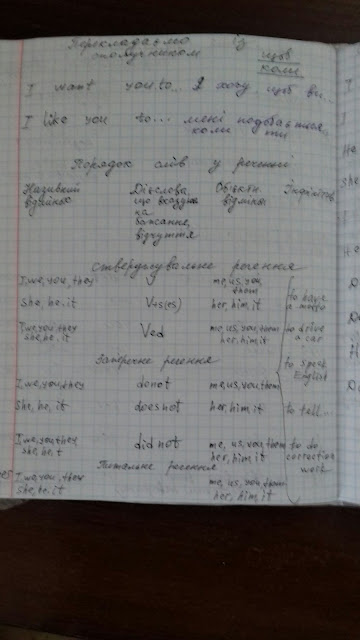 Перекладаємо із
сполучником щоб
коли
I want you to... Я хочу щоб ви...
I like you to... мені подобається
коли ти
Порядок слів у реченні
Називний Дієслова, Об'єктн. Інфінітив
відмінок що вказують відмінки
на
бажання,
відчуття
Стверджувальне речення
I, we, you, they me, us, you, to have
them a
She, he, it V+s(es) her, him, it
I, we, you, they Ved me, us, you, them to drive
she, he, it her, him, it a car
Заперечне речення to speak
English
I, we, you, they do not me, us, you, them
She, he, it does not her, him, it to tell..
I, we, you, they did not me, us, you, them to do
she, he, it her, him, it correction
Питальне речення work
I, we, you, they me, us, you, them
she, he, it her, him, it